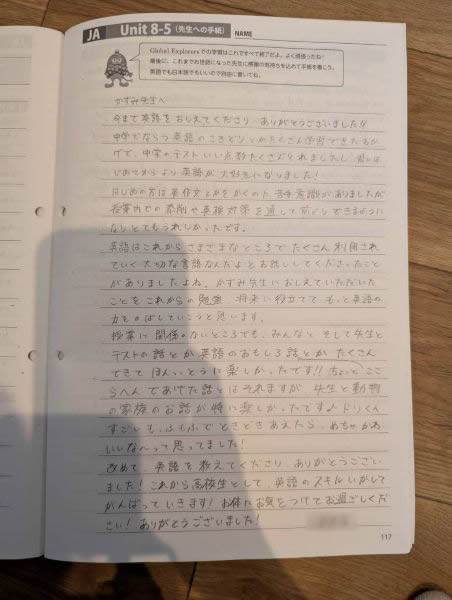 JA Unit 8-5 (先生への手紙) NAME
Global Explorersでの学習はこれですべて終了だよ。よく頑張ったね!
最後に、これまでお世話になった先生に感謝の気持ちを込めて手紙を書こう。
英語でも日本語でもいいので自由に書いてね。
かずみ先生へ
今まで英語をおしえてくださり ありがとうございました!!
中学でならう英語のこと とかたくさん学習できたおか
げで、中学のテスト いい点数たくさんとれましたし、習いは
じめてからより英語が大好きになりました!
はじめの方は英作文とかをかくのに苦手意識がありましたが
授業内での添削や英検対策を通して前よりできるように
なり とてもうれしかったです。
英語はこれから さまざまなところで たくさん利用され
ていく大切な言語なんだよとお話ししてくださったこと
がありましたよね。かずみ先生におしえていただいた
ことをこれからの勉強、将来に役立てて もっと英語の
力をのばしていこうと思います。
授業に関係のないところでも、みんなと そして先生と
テストの話とか英語のおもしろ話とか たくさん
できて ほんっとうに楽しかったです!! ちょっと ここ
らへんであげた話とはそれますが 先生と動物
の家族のお話が特に楽しかったです♪ ドリくん
すごいもふもふで ときどき あえたら、めちゃかわ
いいな〜って思ってました!
改めて 英語を教えてくださり、ありがとうござい
ました! これから高校生として、英語のスキルいかして
がんばっていきます! お体にお気をつけてお過ごしくだ
さい! ありがとうございました!
117